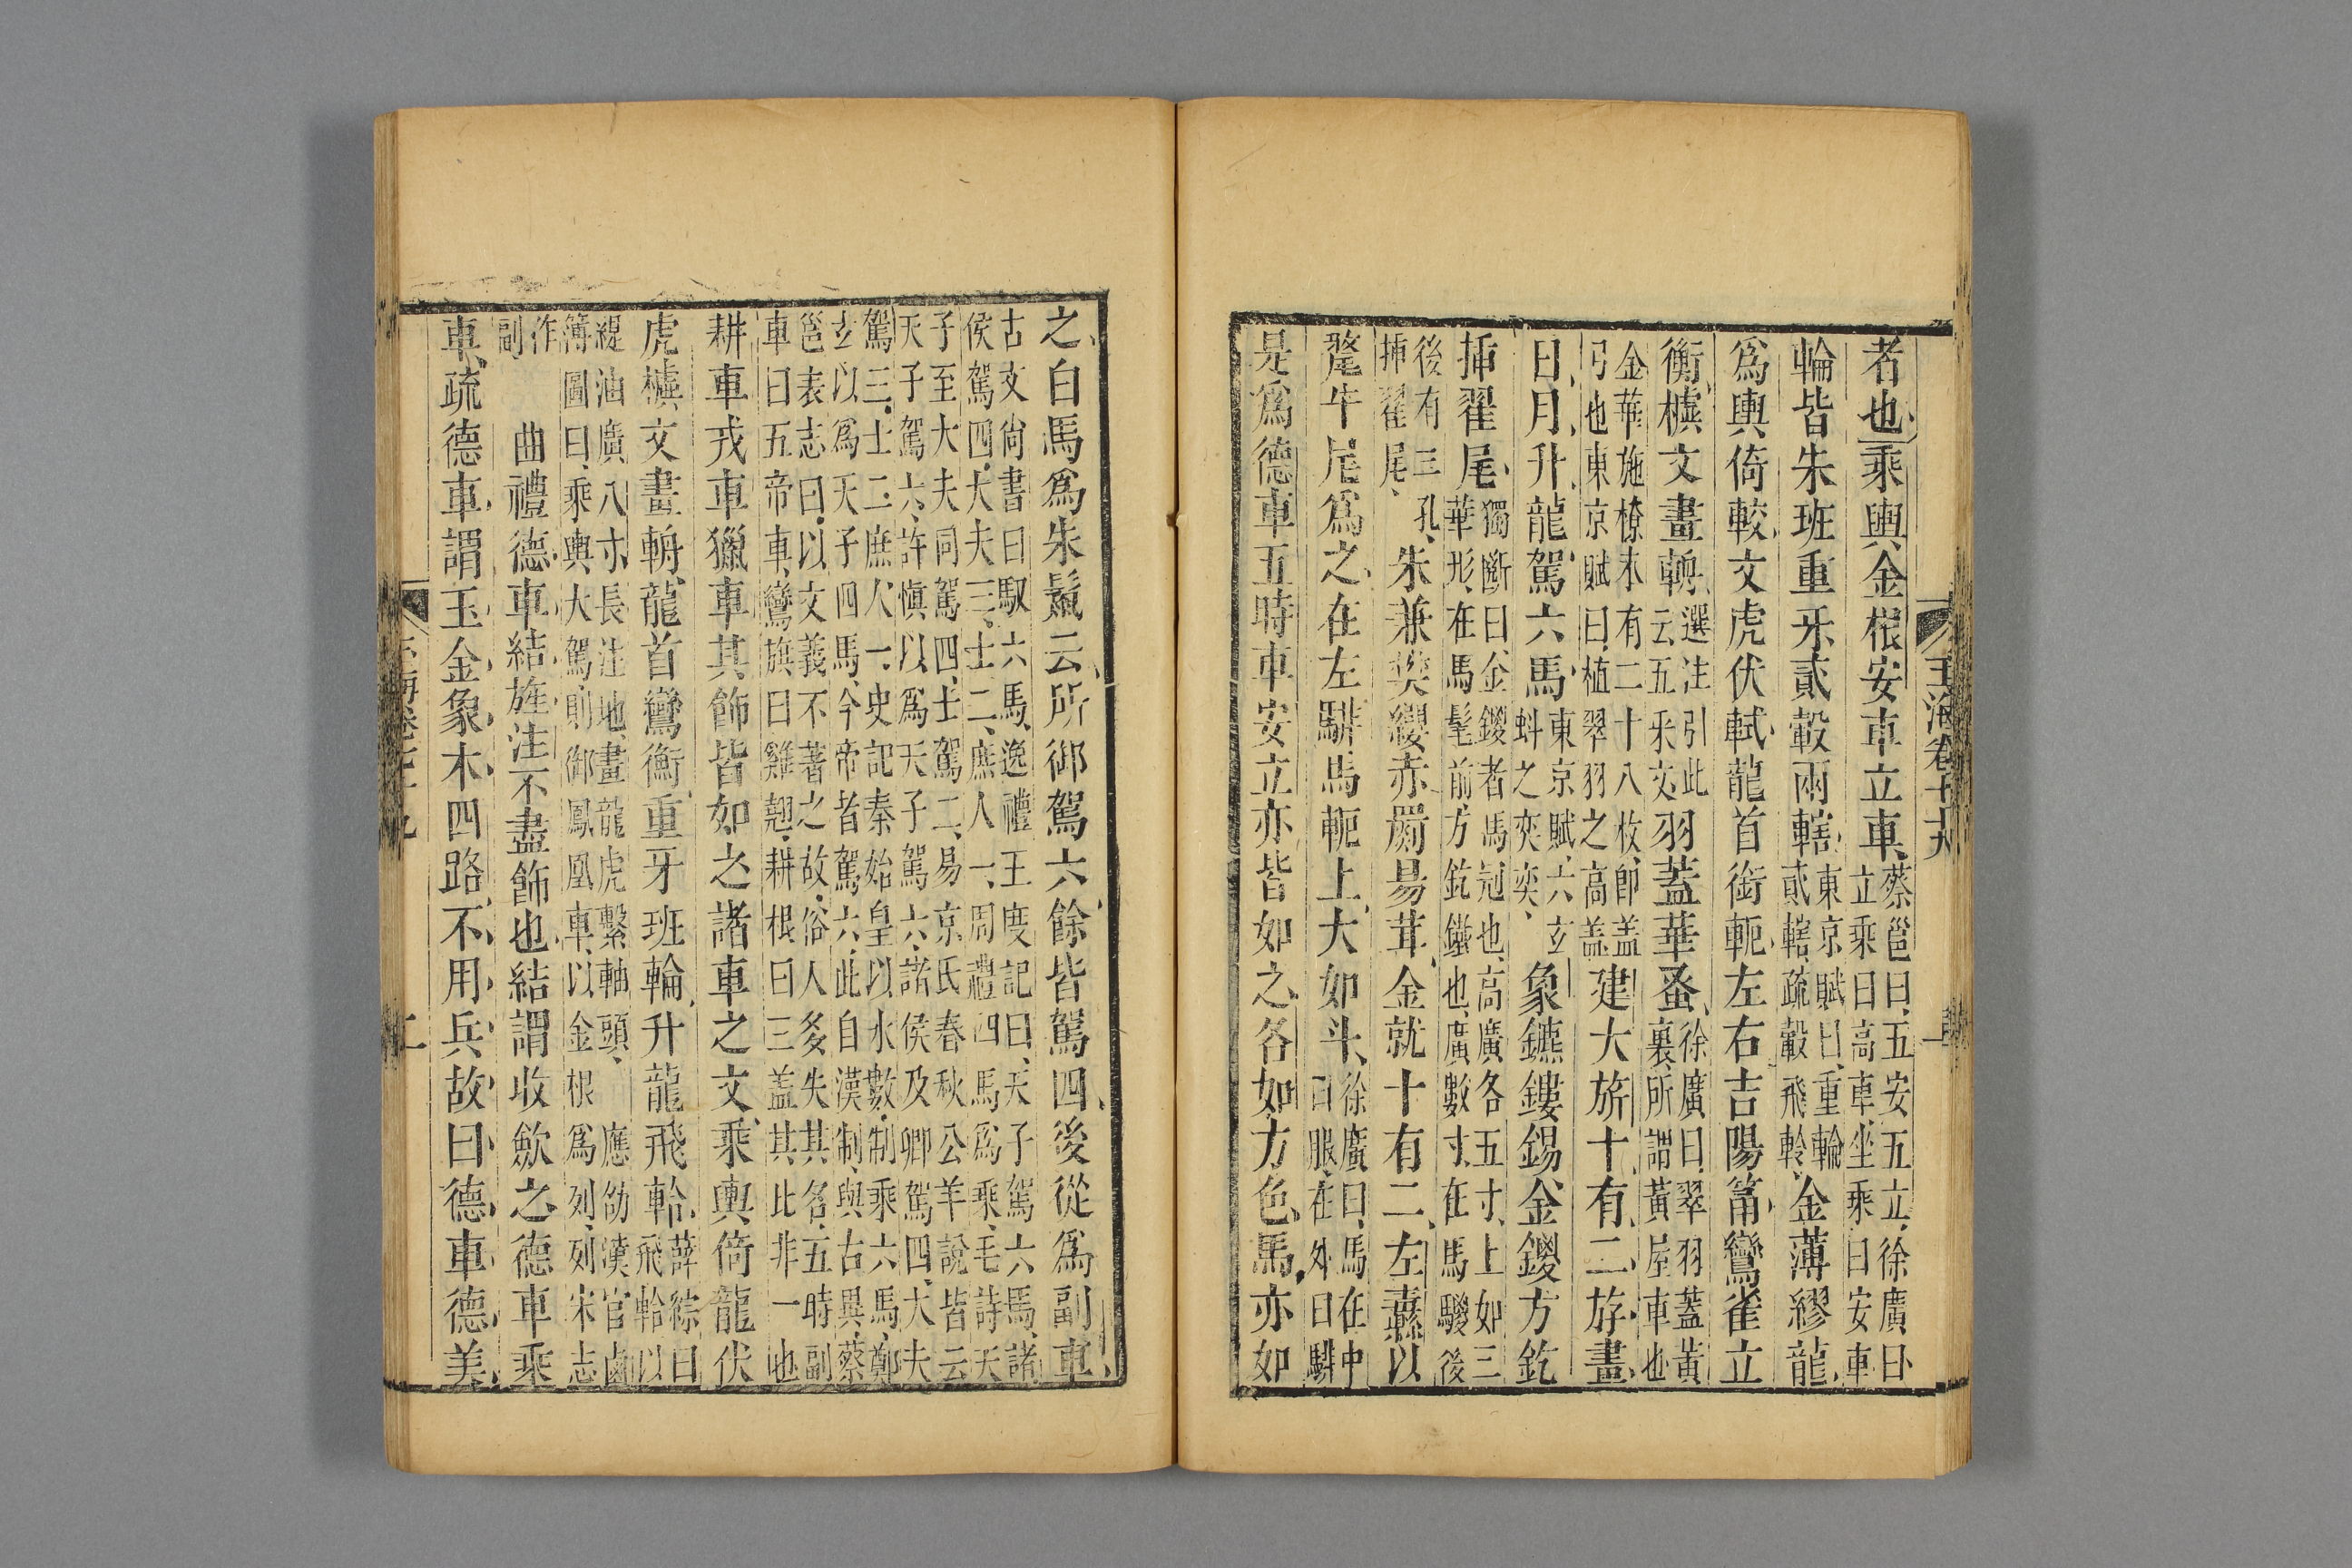 玉海卷七十九
者也乘輿金根安車立車蔡邕曰五安五立徐廣曰
立乘曰高車坐乘曰安車
輪皆朱班重牙貳轂兩轄東京賦曰重輪
貳轄疏轂飛軨金薄繆龍
爲輿倚較文虎伏軾龍首銜軛左右吉陽筩鸞雀立
衡櫎文畫輈選注引此
云五采文羽蓋華蚤徐廣曰翠羽蓋黃
裏所謂黃屋車也
金華施橑末有二十八枚卽盖
弓也東京賦曰植翠羽之高盖建大旂十有二斿畫
日月升龍駕六馬東京賦六玄
蚪之奕奕象鑣鏤錫金鍐方釳
揷翟尾獨斷曰金鍐者馬冠也高廣各五寸上如三
華形在馬髦前方釳鐵也廣數寸在馬騣後
後有三孔
揷翟尾朱兼樊纓赤罽昜茸金就十有二左纛以
氂牛尾爲之在左騑馬軛上大如斗徐廣曰馬在中
曰服在外曰騑
是爲德車五時車安立亦皆如之各如方色馬亦如
之白馬爲朱鬣云所御駕六餘皆駕四後從爲副車
古文尙書曰馭六馬逸禮王度記曰天子駕六馬諸
侯駕四大夫三士二庶人一周禮四馬爲乘毛詩天
子至大夫同駕四士駕二易京氏春秋公羊說皆云
天子駕六許愼以爲天子駕六諸侯及卿駕四大夫
駕三士二庶人一史記秦始皇以水數制乘六馬鄭
玄以爲天子四馬今帝者駕六此自漢制與古異蔡
邕表志曰以文義不著之故俗人多失其名五時副
車曰五帝車鸞旗曰雞翹耕根曰三盖其比非一也
耕車戎車獵車其飾皆如之諸車之文乘輿倚龍伏
虎櫎文畫輈龍首鸞衡重牙班輪升龍飛軨薛綜曰
飛軨以
緹油廣八寸長注地畫龍虎繫軸頭 應劭漢官鹵
簿圖曰乘輿大駕則御鳳凰車以金根爲列列宋志
作
副 曲禮德車結旌注不盡飾也結謂收歛之德車乘
車疏德車謂玉金象木四路不用兵故曰德車德美